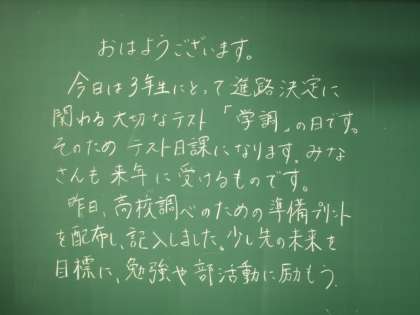 おはようございます。
今日は3年生にとって進路決定に
関わる大切なテスト「学調」の日です。
そのためテスト日課になります。みな
さんも来年に受けるものです。
昨日、高校調べのための準備プリント
を配布し、記入しました。少し先の未来を
目標に、勉強や部活動に励もう。